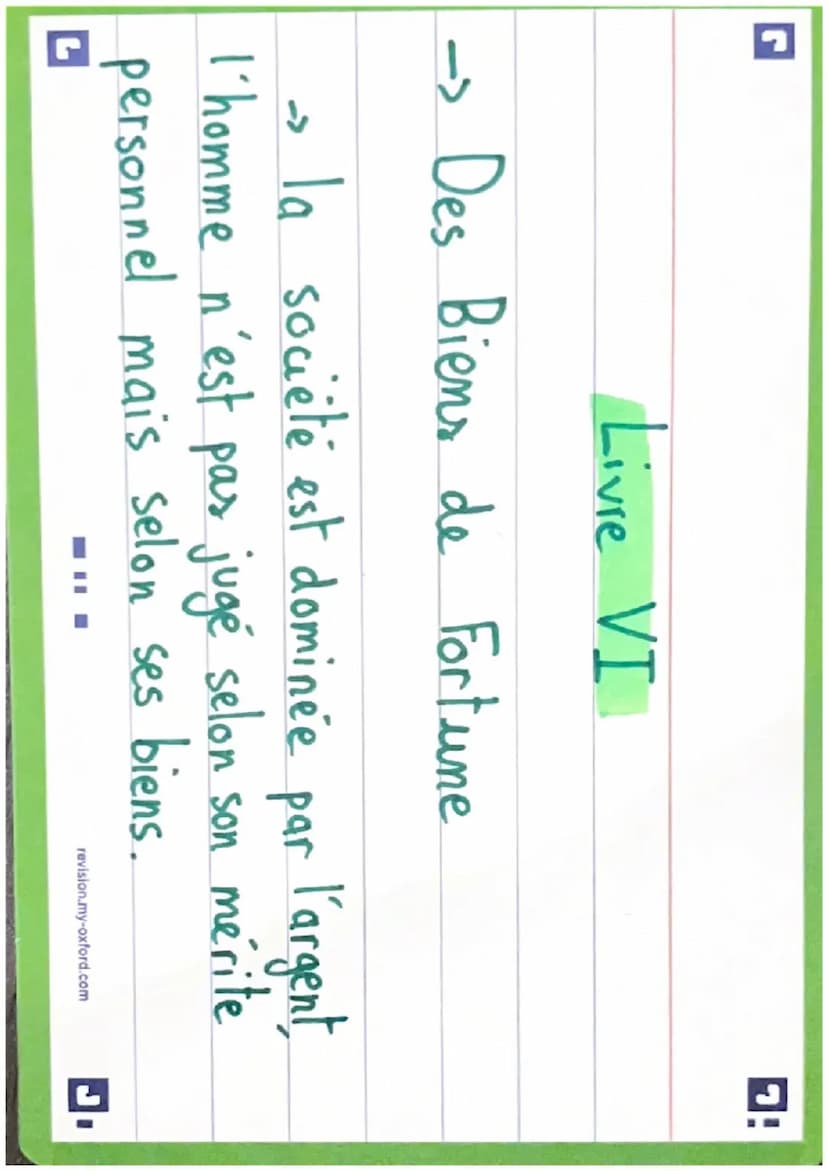 Livre VI
-> Des Biens de Fortune
-> la société est dominée par l'argent,
l'homme n'est pas jugé selon son mérite
personnel mais selon ses biens.
revision.my-oxford.com